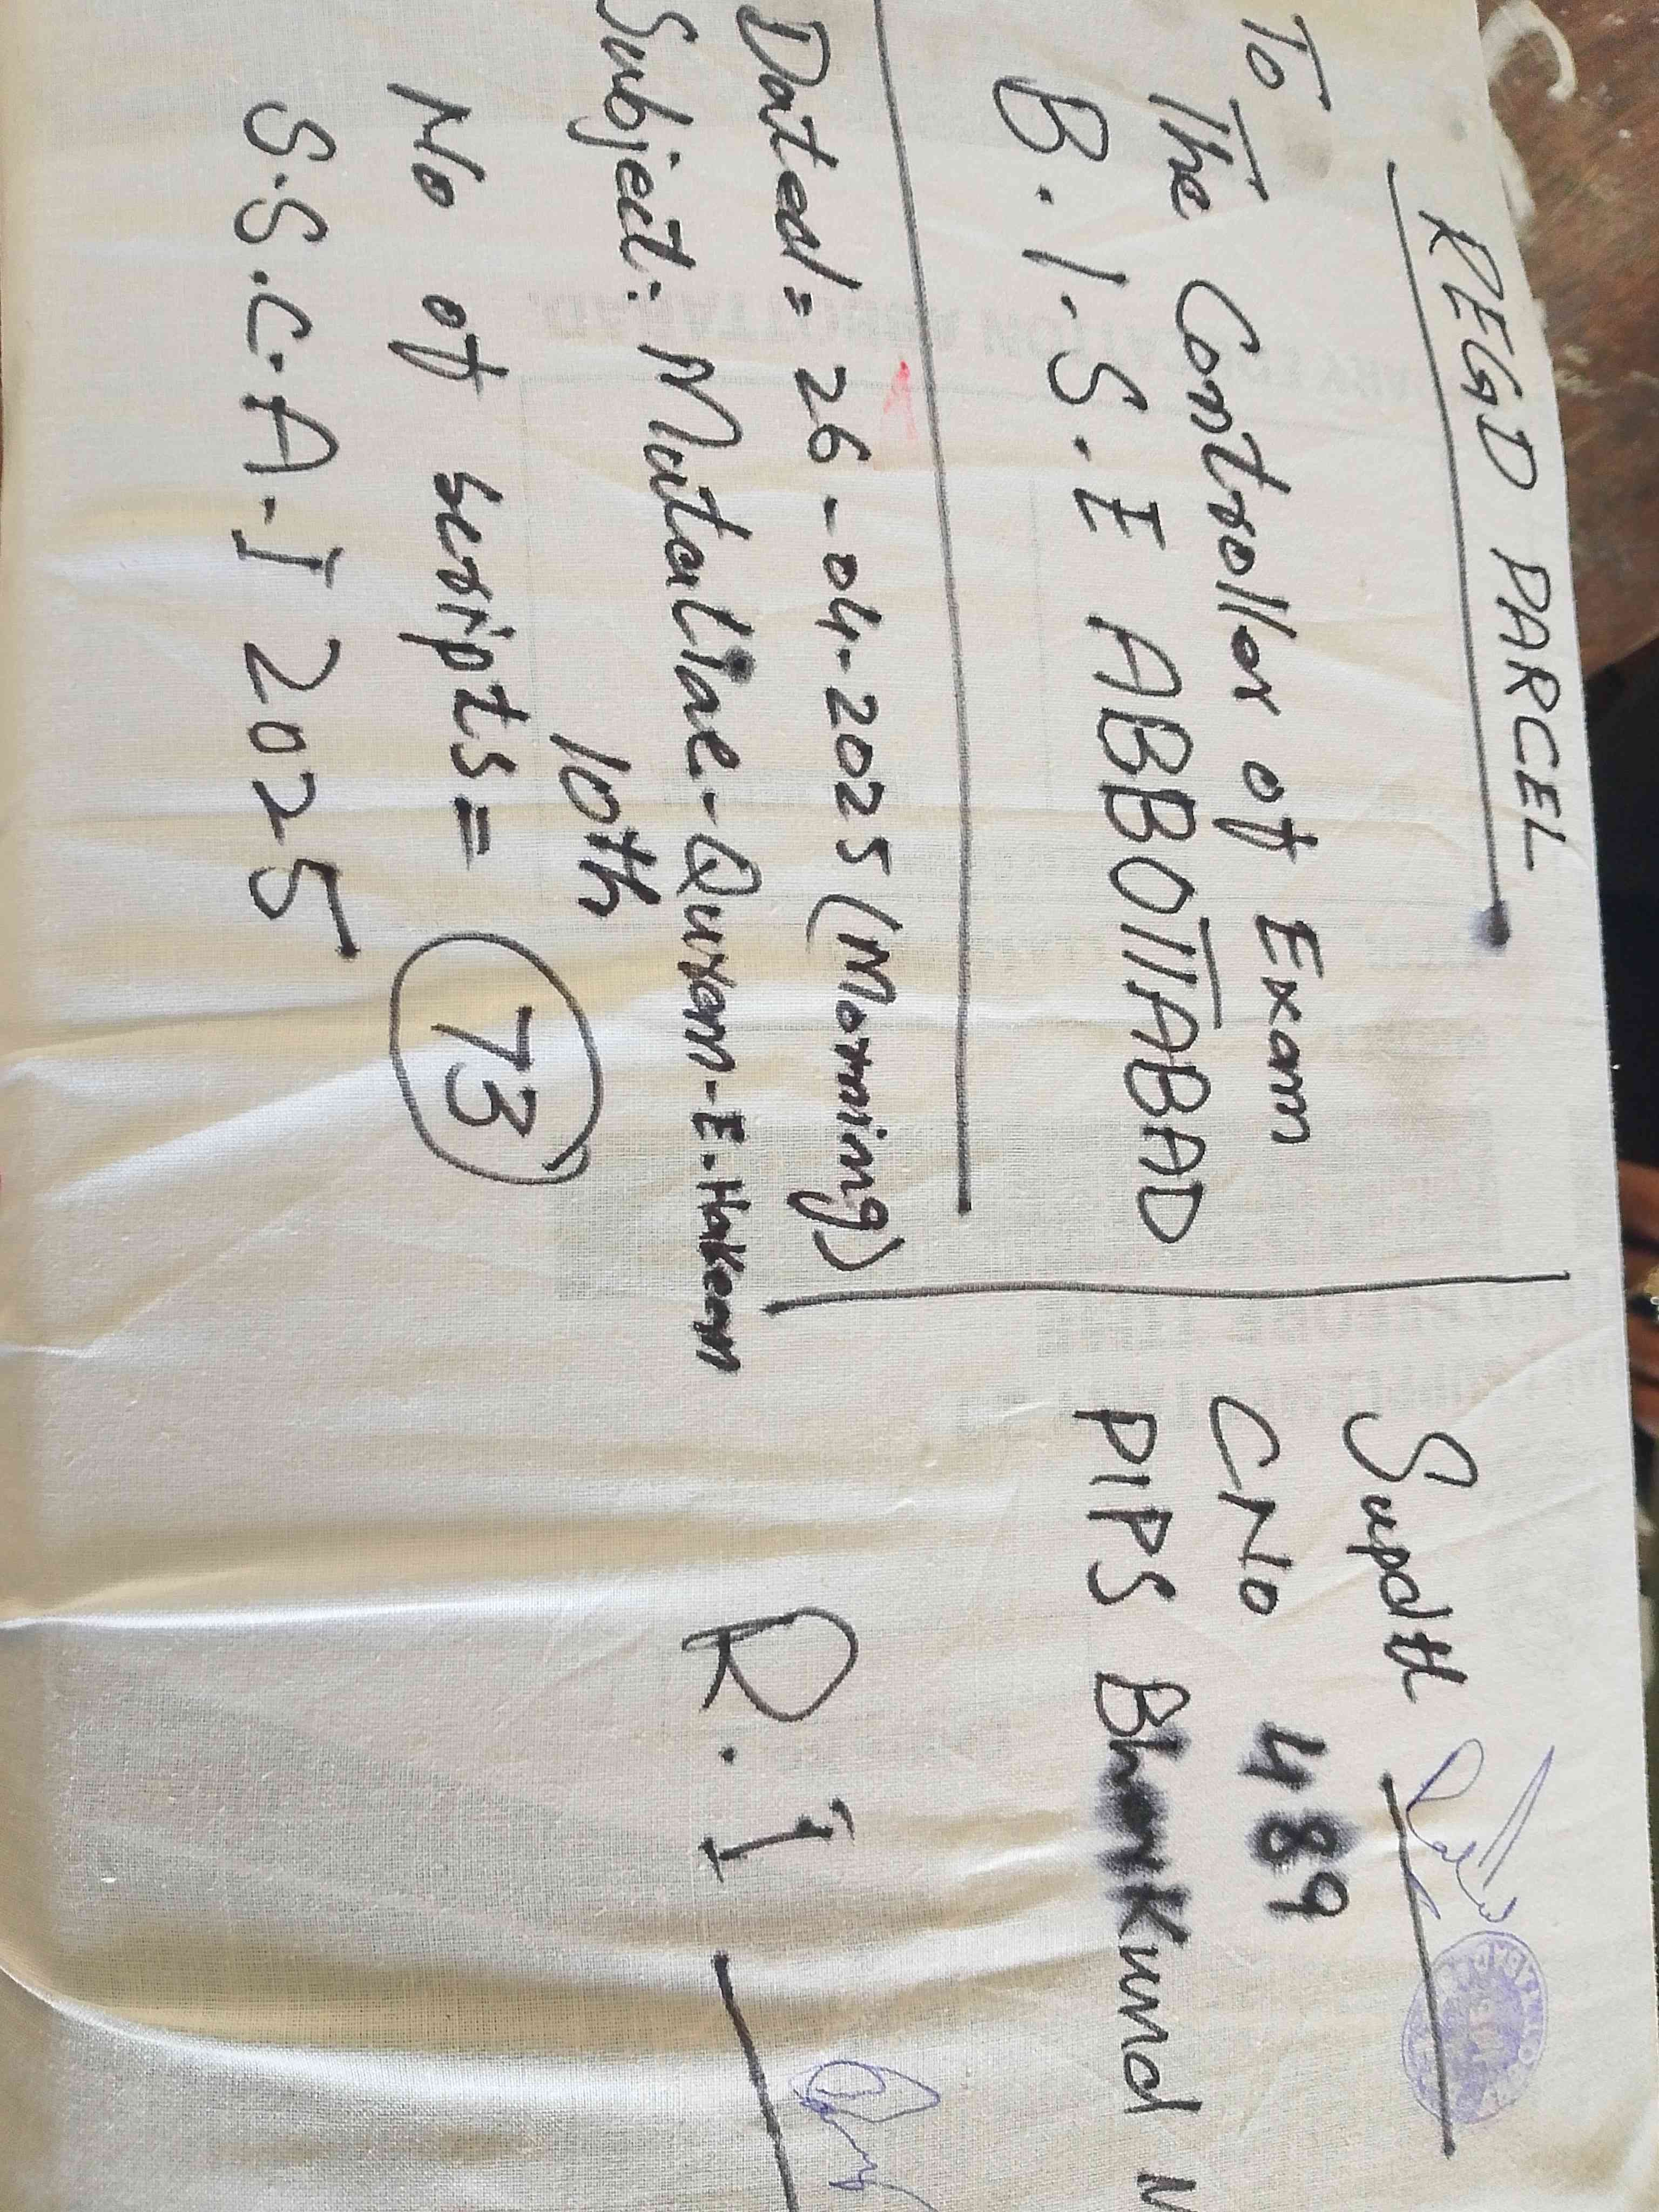 REGD PARCEL
To
The Controllar of Exam
B.I.S.E ABBOTTABAD
Dated = 26-04-2025 (Morning)
Subject: Mutaliae-Quran-E.Hakeem
10th
No of scripts = 73
S.S.C.A-I 2025
Supdtt
CNo 489
PIPS BhanKund
R.I